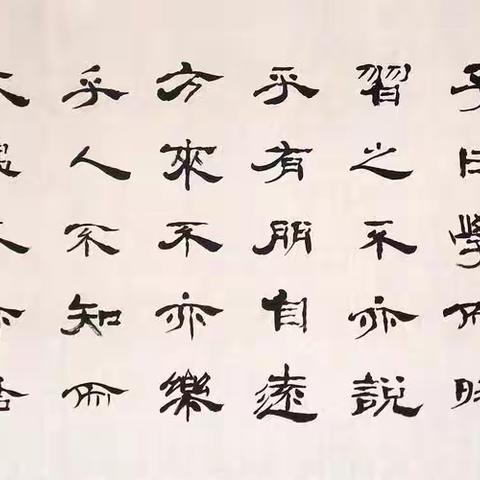 子曰學而時
習之不亦說
乎有朋自遠
方來不亦樂
乎人不知而
不愠不亦君